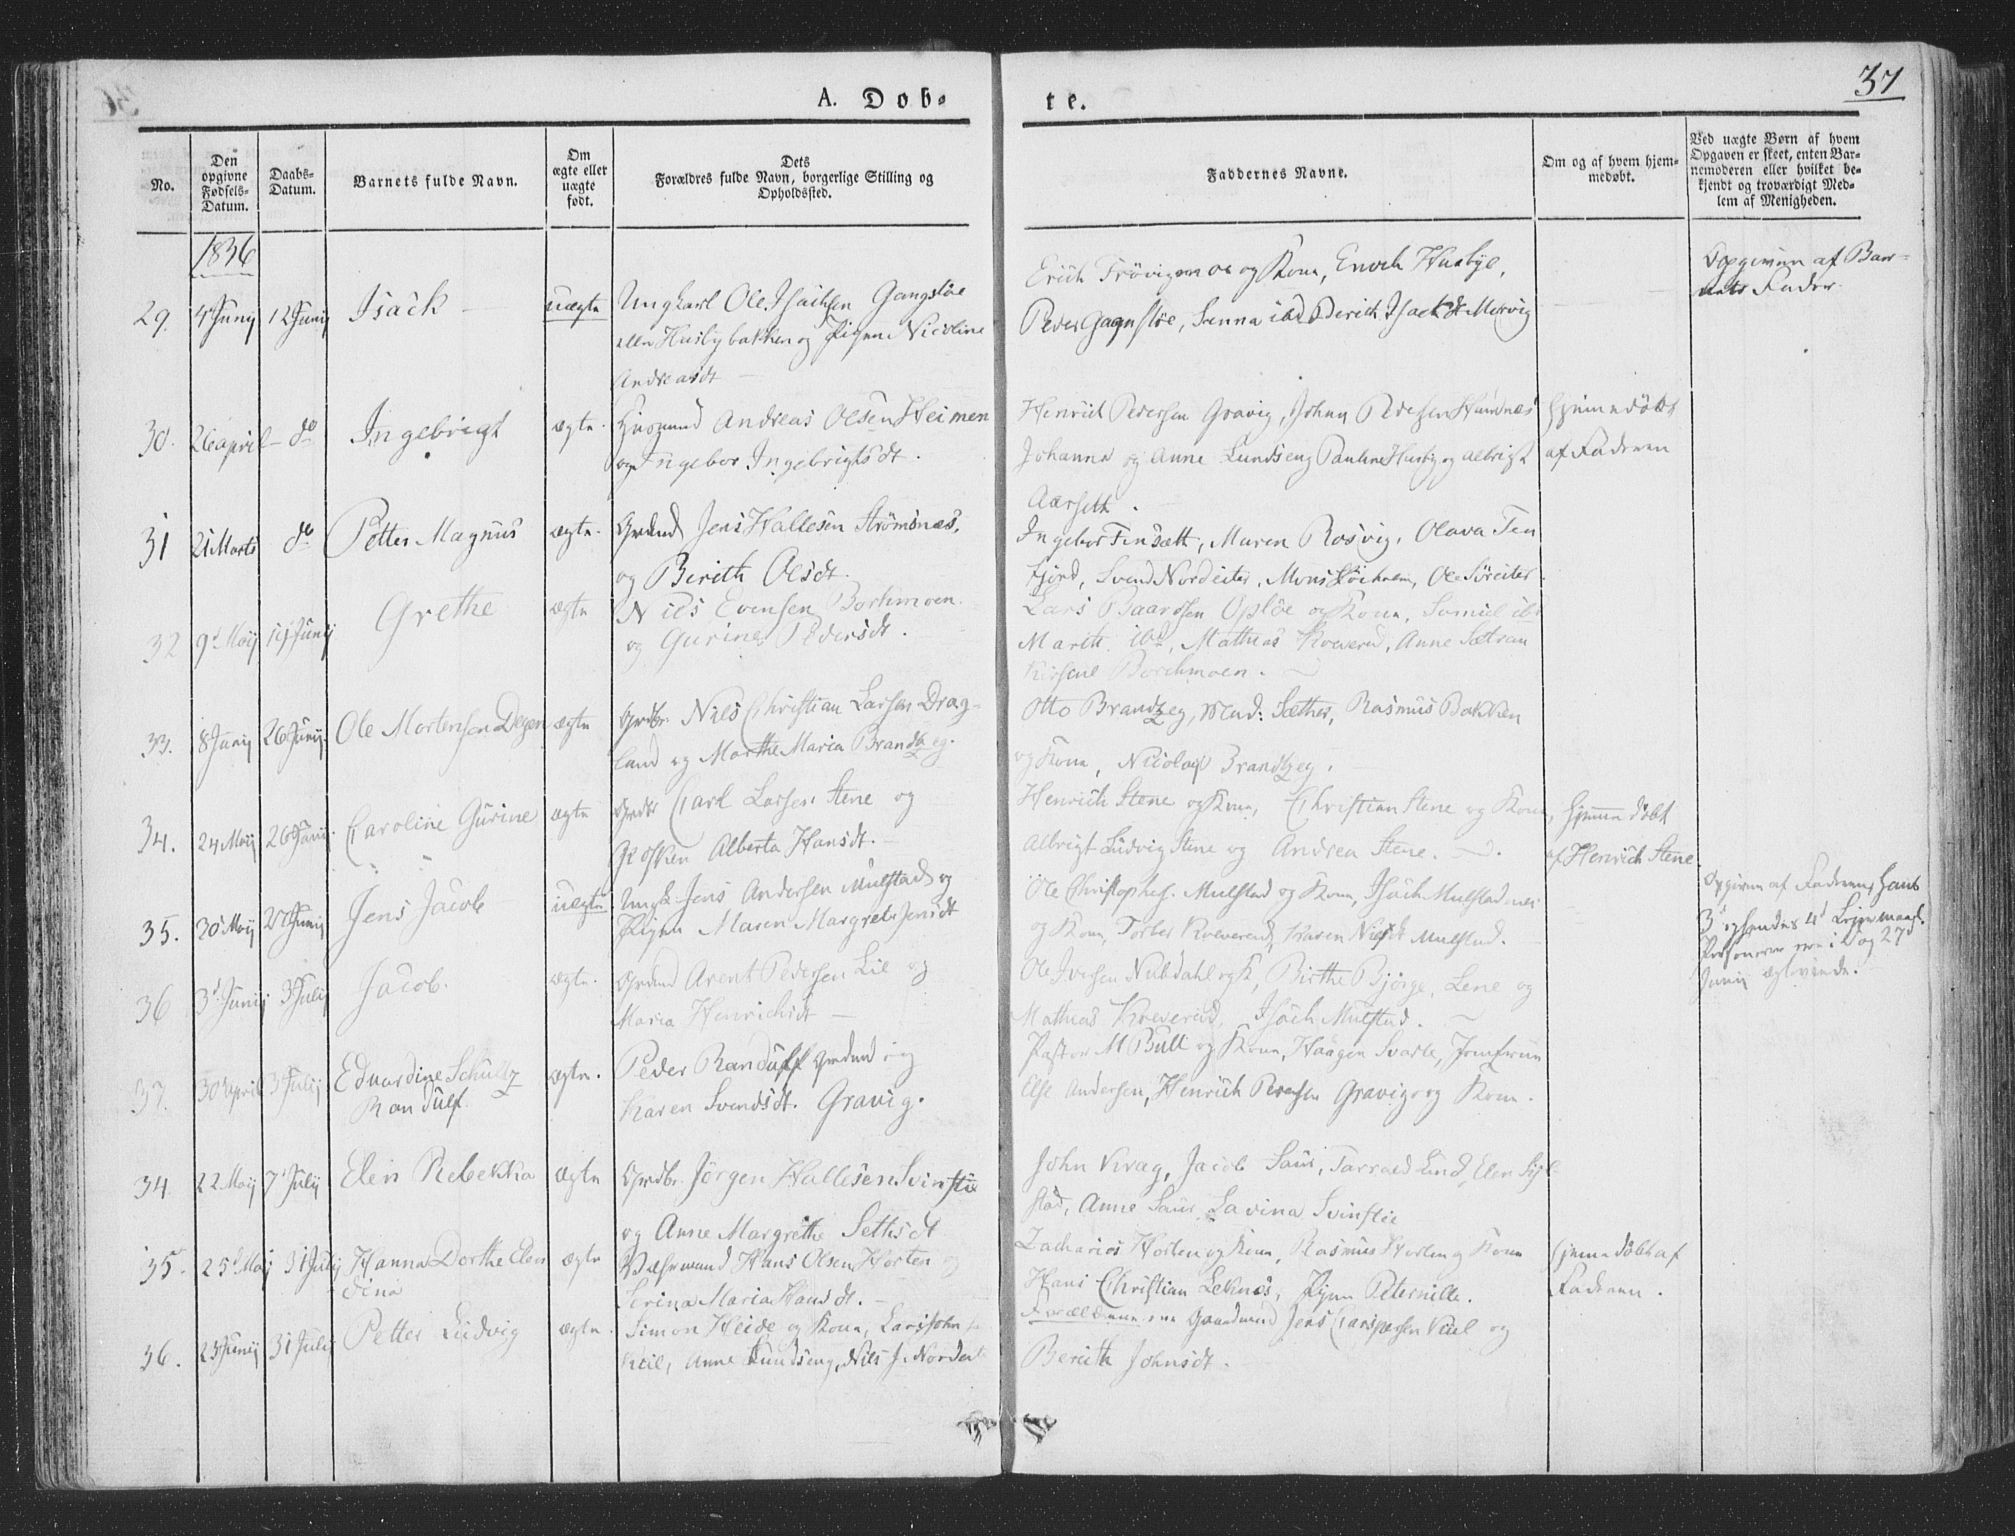 37
A. Døb- te.
No.
Den opgivne Fødsels-Datum.
Daabs-Datum.
Barnets fulde Navn.
Om ægte eller uægte født.
Dets Forældres fulde Navn, borgerlige Stilling og Opholdssted.
Faddernes Navne.
Om og af hvem hjemmedøbt.
Ved uægte Børn af hvem Opgaven er skeet, enten Barnemoderen eller hvilket bekjendt og troværdigt Medlem af Menigheden.
1836
29. 4 Juny 12 Juny Isack uægte
Ungkarl Ole Isachsen Gangstøe
eller Husbybakken og Pigen Nicoline
Andreasdt
Erich Trøvig og Kone, Enoch Husbye,
Peder Gangstøe, Isack Mervig
Opgiven af Bar-
nets Fader.
30. 26 april do Ingebrigt ægte.
Husmand Andreas Olsen Heimen
og Ingebor Ingebrigtsdt.
Henrich Pedersen Gravig, Johan Pedersen
Johanna og Anne Lundseng Pauline Husby og Albrigt
Aarseth.
Hjemmedøbt
af Faderen
31 21 Marts do Petter Magnus ægte.
Grdmd Jens Hallesen Strømsnæs,
og Berith Olsdt.
Ingebor Finsæth, Maren Rosvig, Olava Ten
fjord, Svend Nordeiter, Mons, Ole Søreiter.
32 9d May 19 Juny Grethe ægte
Niels Evensen Borchmoen
og Gurine Pedersdt.
Lars Baardsen Opløe og Kone, Samuel ibd
Marit ibd, Mathias Kveverud, Anne Sætran
Borchmoen.
33. 8 Juny 26 Juny. Ole Mortensen Degen ægte
Grdbr. Niels Christian Larsen Drag-
land og Marthe Maria Brandtzeg.
Otto Brandtzeg, Mad: Sæther, Rasmus Bakken
og Kone, Nicolay Brandtzeg.
34. 24 May 26 Juny. Caroline Gurine ægte
Grdbr Carl Larsen Stene og
Alberta Hansdt.
Henrich Stene og Kone, Christian Stene og Kone,
Albrigt Ludvig Stene og Andrea Stene.
Hjemmedøbt
af Henrich Stene
35. 30 May 27 Juny Jens Jacob uægte
Ungk. Jens Andersen Mulstad og
Pigen Maren Margrete Jensdt
Ole Christophes. Mulstad og Kone, Isach Mulstad
og Kone, Torber Kveverud, Karen Nilsdt Mulstad.
Opgiven af Faderen, hans
3d, hendes 4d Leiermaal.
36 3d Juny 3 July Jacob. ægte.
Grdmd Arent Pedersen Lie og
Maria Henrichsdt
Ole Iversen Nubdahl og K, Birthe Bjørge, Lene og
Mathias Kveverud, Isach Mulstad.
37. 30 April 3 July Eduardine Schultz
Randulf. ægte.
Peder Randulff Grdmd og
Karen Svendsdt. Gravig.
Pastor M Bull og Kone, Haagen Svarte, Jomfrue
Else Andersen, Henrich Pedersen Gravig og Kone.
34 22 May 7 July Elen Rebekka ægte
Grdbr. Jørgen Hallesen Svinstie
og Anne Margrethe Sethsdt
John Krag, Jacob Saur, Tarrald Lund, Elen Sjøl-
stad, Anne Saur, Lavina Svinstie
35. 25d May 31 July Hanna Dorthe Elen
dina ægte
Hans Olsen Horten og
Serina Maria Hansdt.
Zacharias Horten og Kone, Rasmus Horten og Kone
Hans Christian Leknæs, Pigen Peternille.
Hjemmedøbt af
Faderen.
36. 23 Juny 31 July Petter Ludvig ægte
Simon Heide og Kone, Lars John
Kiil, Anne Lundseng, Nils J. Nordeit
Forældrene ere Gaardmand Jens Caspersen Kiil og
Berith Johnsdt.